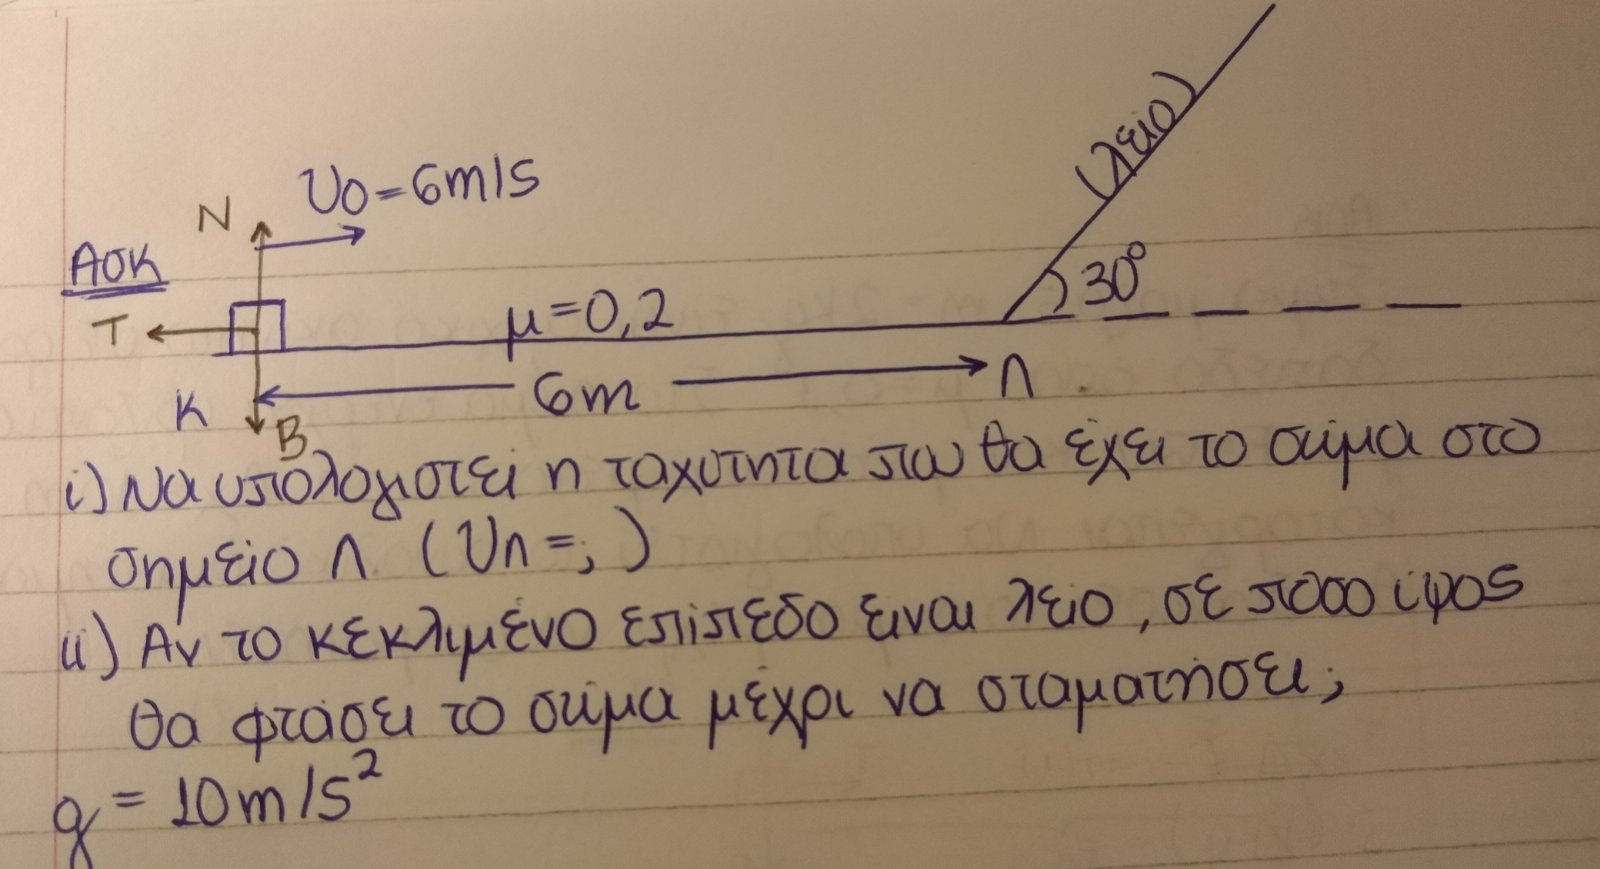 (λείο)
υ0=6m/s
N
Ασκ
30°
T
μ=0,2
6m
Λ
K
B
i) Να υπολογιστεί η ταχύτητα που θα έχει το σώμα στο
σημείο Λ (υΛ=;)
ii) Αν το κεκλιμένο επίπεδο ειναι λείο, σε ποσο ύψος
θα φτάσει το σώμα μέχρι να σταματήσει;
g = 10m/s²